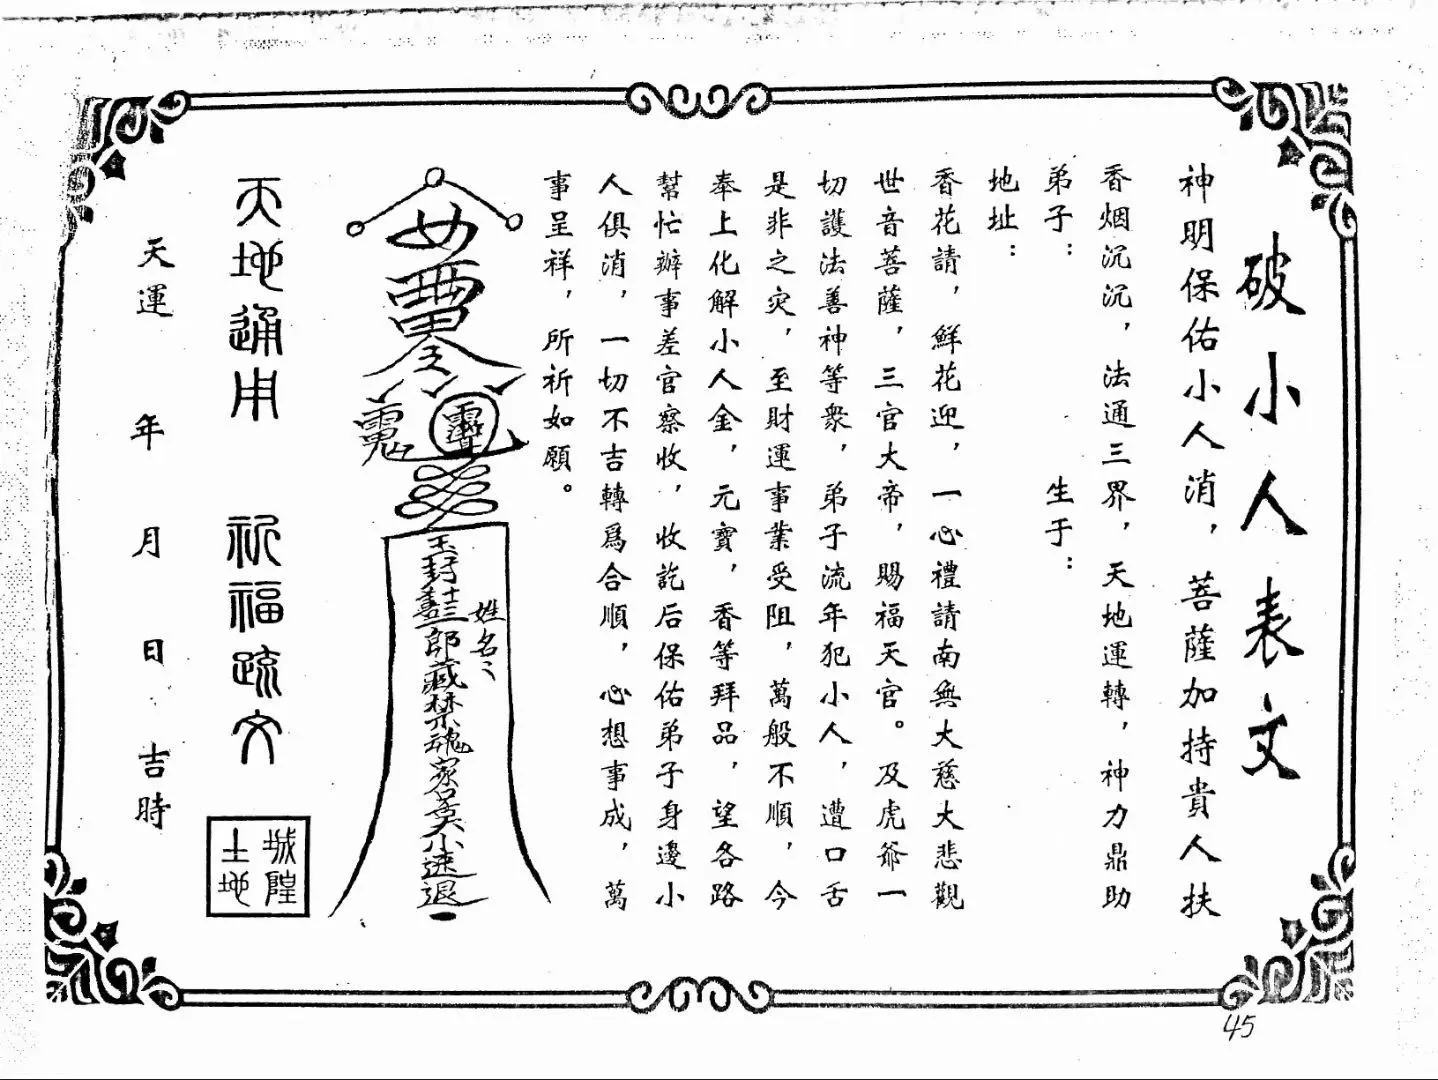 破小人表文
神明保佑小人消，菩薩加持貴人扶
香烟沉沉，法通三界，天地運轉，神力鼎助
弟子：　生于：
地址：
香花請，鮮花迎，一心禮請南無大慈大悲觀
世音菩薩，三官大帝，賜福天官。及虎爺一
切護法善神等衆，弟子流年犯小人，遭口舌
是非之灾，至財運事業受阻，萬般不順，今
奉上化解小人金，元寶，香等拜品，望各路
幫忙辦事差官察收，收訖后保佑弟子身邊小
人俱消，一切不吉轉爲合順，心想事成，萬
事呈祥，所祈如願。
玉封
十三郎藏禁魂
小速退
姓名
天地通用　祈福疏文
城隍
土地
天運　年　月　日　吉時
45